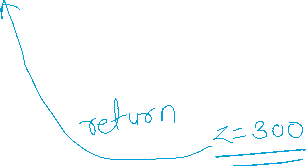 return
z=300